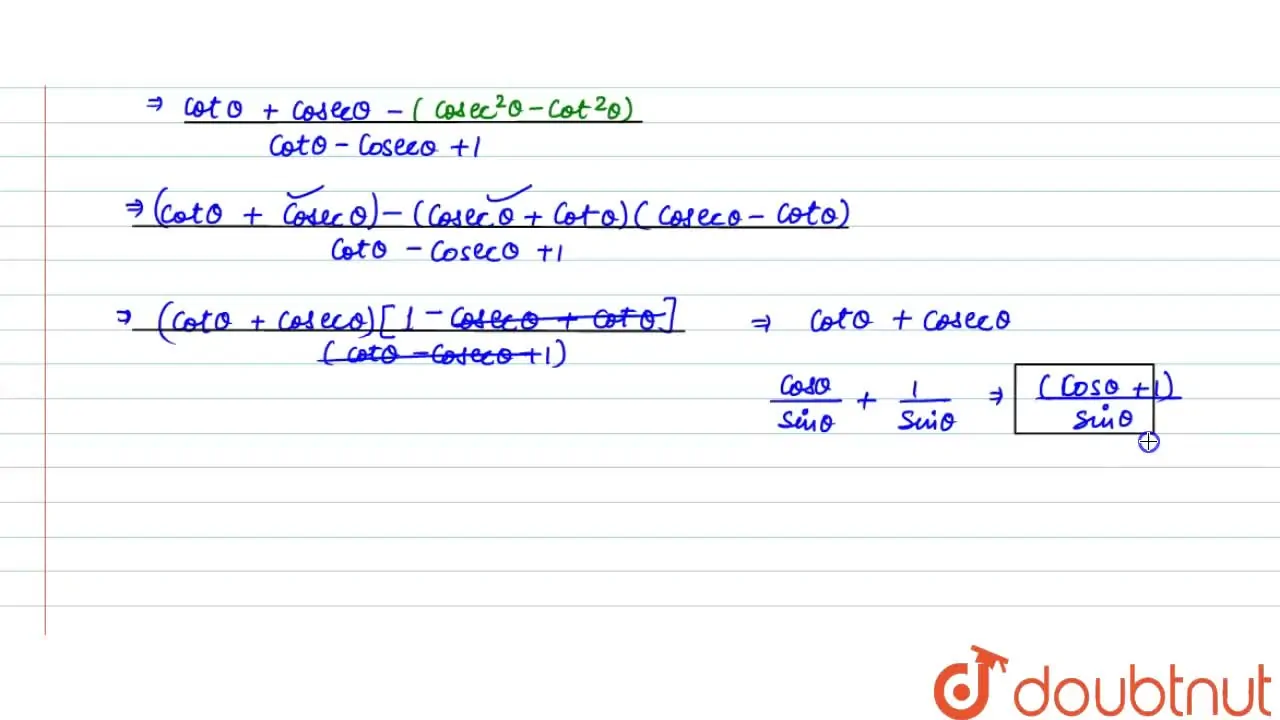 ⇒ cotθ + cosecθ - (cosec²θ - cot²θ)
cotθ - cosecθ + 1
⇒ (cotθ + cosecθ) - (cosecθ + cotθ)(cosecθ - cotθ)
cotθ - cosecθ + 1
⇒ (cotθ + cosecθ)[1 - cosecθ + cotθ]
(cotθ - cosecθ + 1)
⇒ cotθ + cosecθ
cosθ/sinθ + 1/sinθ ⇒ (cosθ + 1)/sinθ
doubtnut